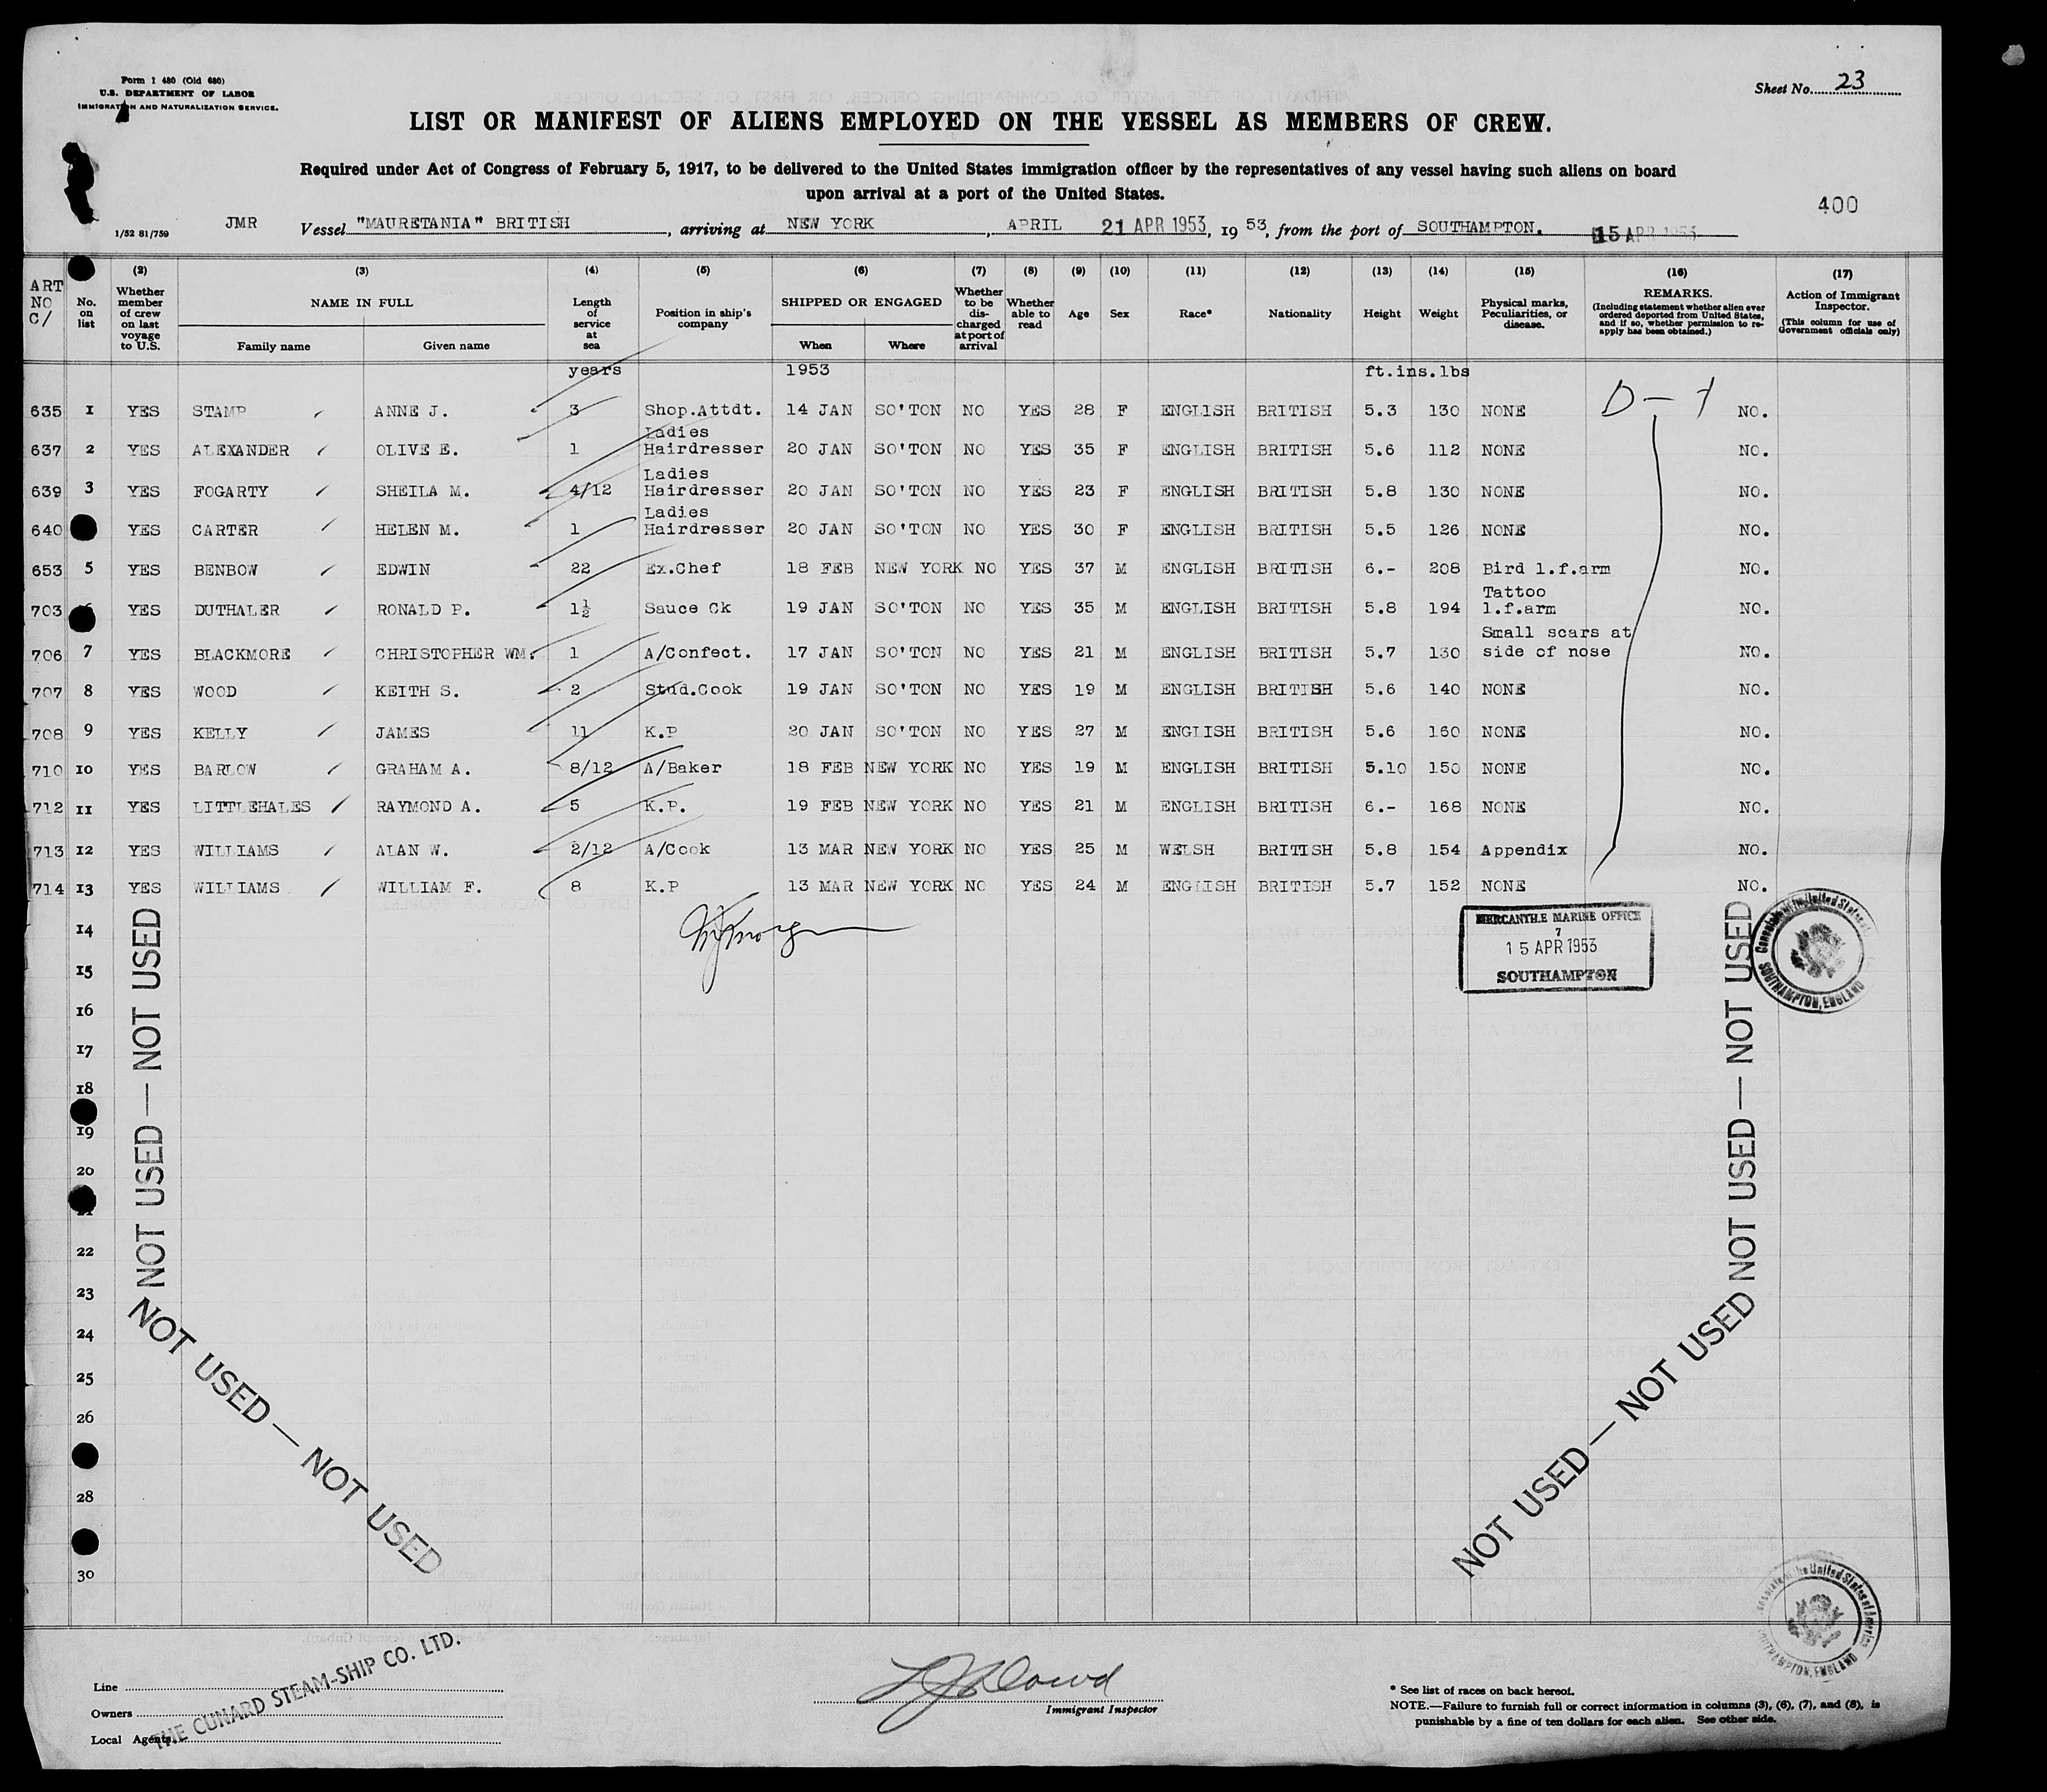 Form I 480 (Old 680)
U.S. DEPARTMENT OF LABOR
IMMIGRATION AND NATURALIZATION SERVICE.
Sheet No. 23
LIST OR MANIFEST OF ALIENS EMPLOYED ON THE VESSEL AS MEMBERS OF CREW.
Required under Act of Congress of February 5, 1917, to be delivered to the United States immigration officer by the representatives of any vessel having such aliens on board
upon arrival at a port of the United States.
400
1/52 81/759 JMR Vessel "MAURETANIA" BRITISH, arriving at NEW YORK, APRIL 21 APR 1953, 1953, from the port of SOUTHAMPTON. 15 APR 1953
ART NO C/ No. on list (2) Whether member of crew on last voyage to U.S. (3) NAME IN FULL Family name Given name (4) Length of service at sea (5) Position in ship's company (6) SHIPPED OR ENGAGED When Where (7) Whether to be discharged at port of arrival (8) Whether able to read (9) Age (10) Sex (11) Race* (12) Nationality (13) Height (14) Weight (15) Physical marks, Peculiarities, or disease. (16) REMARKS. (Including statement whether alien ever ordered deported from United States, and if so, whether permission to re-apply has been obtained.) (17) Action of Immigrant Inspector. (This column for use of Government officials only)
years 1953 ft.ins.lbs
635 1 YES STAMP ANNE J. 3 Shop.Attdt. 14 JAN SO'TON NO YES 28 F ENGLISH BRITISH 5.3 130 NONE D - 1 NO.
637 2 YES ALEXANDER OLIVE E. 1 Ladies Hairdresser 20 JAN SO'TON NO YES 35 F ENGLISH BRITISH 5.6 112 NONE NO.
639 3 YES FOGARTY SHEILA M. 4/12 Ladies Hairdresser 20 JAN SO'TON NO YES 23 F ENGLISH BRITISH 5.8 130 NONE NO.
640 YES CARTER HELEN M. 1 Ladies Hairdresser 20 JAN SO'TON NO YES 30 F ENGLISH BRITISH 5.5 126 NONE NO.
653 5 YES BENBOW EDWIN 22 Ex.Chef 18 FEB NEW YORK NO YES 37 M ENGLISH BRITISH 6.- 208 Bird l.f.arm NO.
703 YES DUTHALER RONALD P. 1½ Sauce Ck 19 JAN SO'TON NO YES 35 M ENGLISH BRITISH 5.8 194 Tattoo l.f.arm NO.
706 7 YES BLACKMORE CHRISTOPHER WM. 1 A/Confect. 17 JAN SO'TON NO YES 21 M ENGLISH BRITISH 5.7 130 Small scars at side of nose NO.
707 8 YES WOOD KEITH S. 2 Stud.Cook 19 JAN SO'TON NO YES 19 M ENGLISH BRITISH 5.6 140 NONE NO.
708 9 YES KELLY JAMES 11 K.P 20 JAN SO'TON NO YES 27 M ENGLISH BRITISH 5.6 160 NONE NO.
710 10 YES BARLOW GRAHAM A. 8/12 A/Baker 18 FEB NEW YORK NO YES 19 M ENGLISH BRITISH 5.10 150 NONE NO.
712 11 YES LITTLEHALES RAYMOND A. 5 K.P. 19 FEB NEW YORK NO YES 21 M ENGLISH BRITISH 6.- 168 NONE NO.
713 12 YES WILLIAMS ALAN W. 2/12 A/Cook 13 MAR NEW YORK NO YES 25 M WELSH BRITISH 5.8 154 Appendix NO.
714 13 YES WILLIAMS WILLIAM F. 8 K.P 13 MAR NEW YORK NO YES 24 M ENGLISH BRITISH 5.7 152 NONE NO.
14
15
16
17
18
19
20
22
23
24
25
26
28
30
MERCANTILE MARINE OFFICE
7
15 APR 1953
SOUTHAMPTON
Consulate of the United States of America
SOUTHAMPTON, ENGLAND
NOT USED — NOT USED — NOT USED
NOT USED — NOT USED
NOT USED — NOT USED — NOT USED
NOT USED — NOT USED
Consulate of the United States of America
SOUTHAMPTON, ENGLAND
Line
Owners
Local Agents
THE CUNARD STEAM-SHIP CO. LTD.
Immigrant Inspector
* See list of races on back hereof.
NOTE.—Failure to furnish full or correct information in columns (3), (6), (7), and (8), is
punishable by a fine of ten dollars for each alien. See other side.